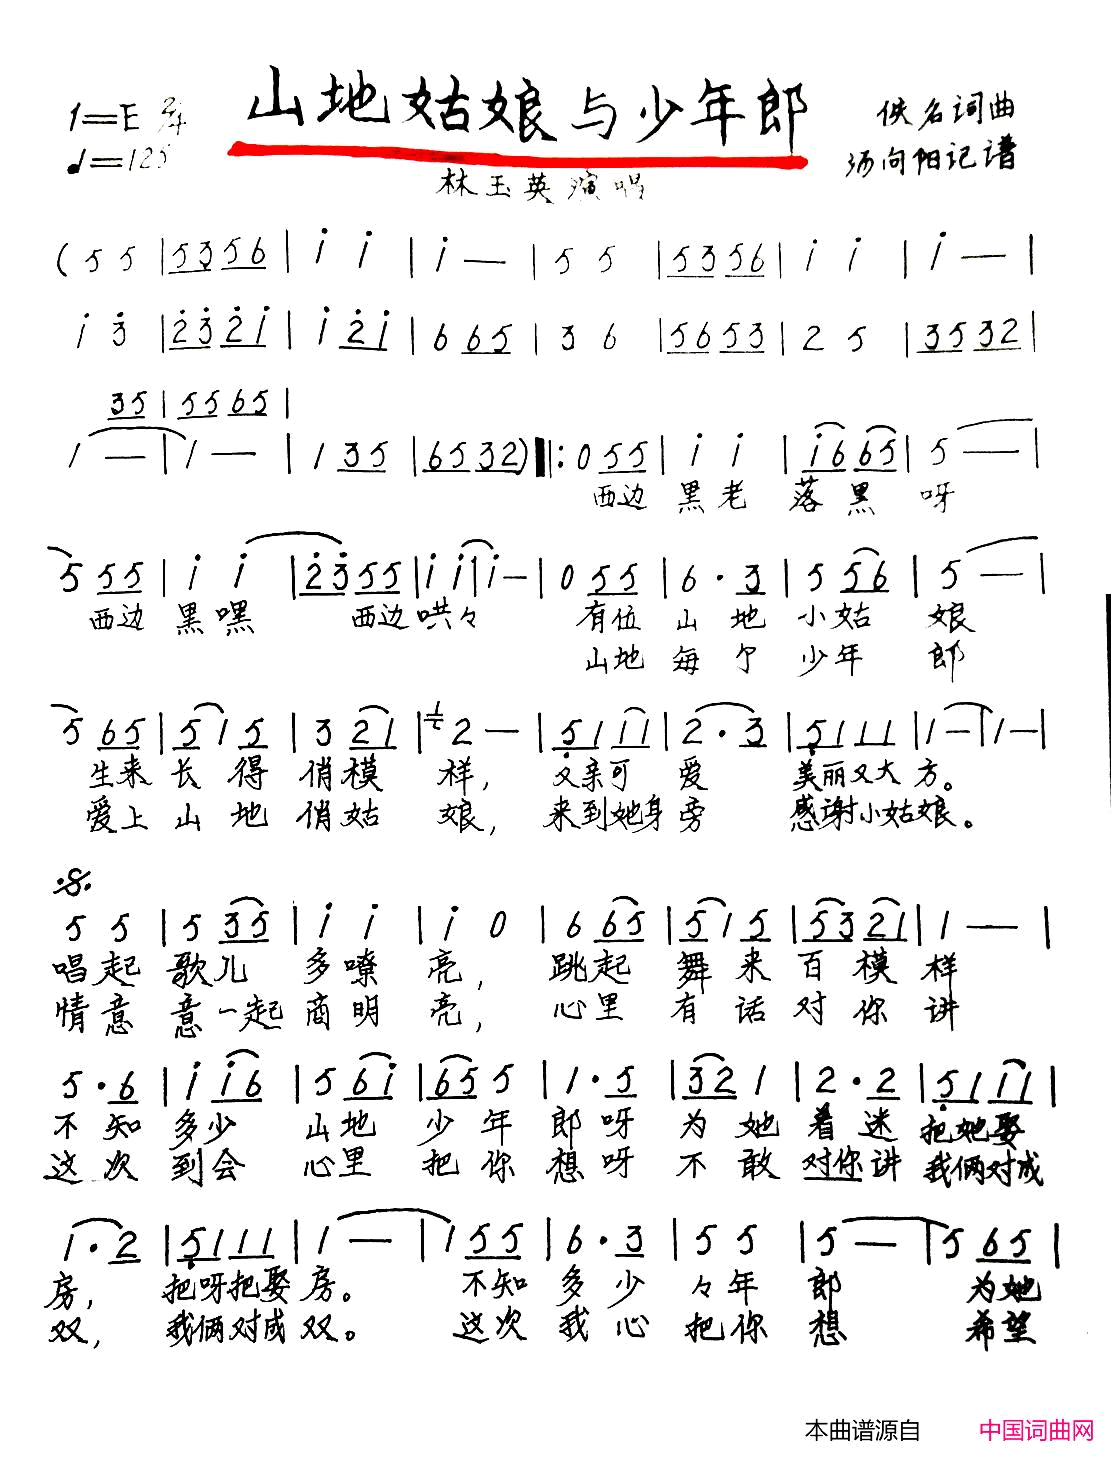 山地姑娘与少年郎
1=E 2/4
♩=125
佚名词曲
向阳记谱
林玉英演唱
( 5 5 | 5356 | i i | i — | 5 5 | 5356 | i i | i — |
i 3̇ | 2̇3̇2̇i | i 2̇i | 6 65 | 3 6 | 5653 | 2 5 | 3532 |
35 | 55 65 |
1 — | 1 — | 1 35 | 6532 ) ‖: 0 55 | i i | i6 65 | 5 — |
西边 黑老 落黑 呀
5 55 | i i | 2̇3̇55 | i i | i — | 0 55 | 6 · 3 | 5 56 | 5 — |
西边 黑嘿 西边哄々 有位 山地 小姑 娘
山地 每个 少年 郎
5 65 | 5 1 5 | 3 21 | 2 — | 5̣111 | 2 · 3 | 5̣111 | 1 — | 1 — |
生来 长得 俏模 样, 又亲可爱 美丽又大方。
爱上 山地 俏姑 娘, 来到她身旁 感谢小姑娘。
5 5 | 5 35 | i i | i 0 | 6 65 | 5 1 5 | 53 21 | 1 — |
唱起 歌儿 多嘹 亮, 跳起 舞来 百模 样
情意 意一起 商明 亮, 心里 有话 对你 讲
5 · 6 | i i6 | 5 6i | 65 5 | 1 · 5 | 32 1 | 2 · 2 | 5̣111 |
不知 多少 山地 少年 郎呀 为她 着迷 把她娶
这次 到会 心里 把你 想呀 不敢 对你讲 我俩对成
1 · 2 | 5̣111 | 1 — | 1 55 | 6 · 3 | 5 5 | 5 — | 5 65 |
房, 把呀把娶 房。 不知 多少 々年 郎 为她
双, 我俩对成 双。 这次 我心 把你 想 希望
本曲谱源自 中国词曲网